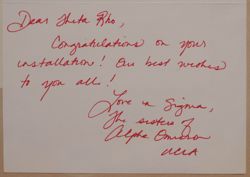 Dear Theta Rho,
Congratulations on your
installation! Our best wishes
to you all!
Love in Sigma,
The sisters of
Alpha Omicron
UCLA